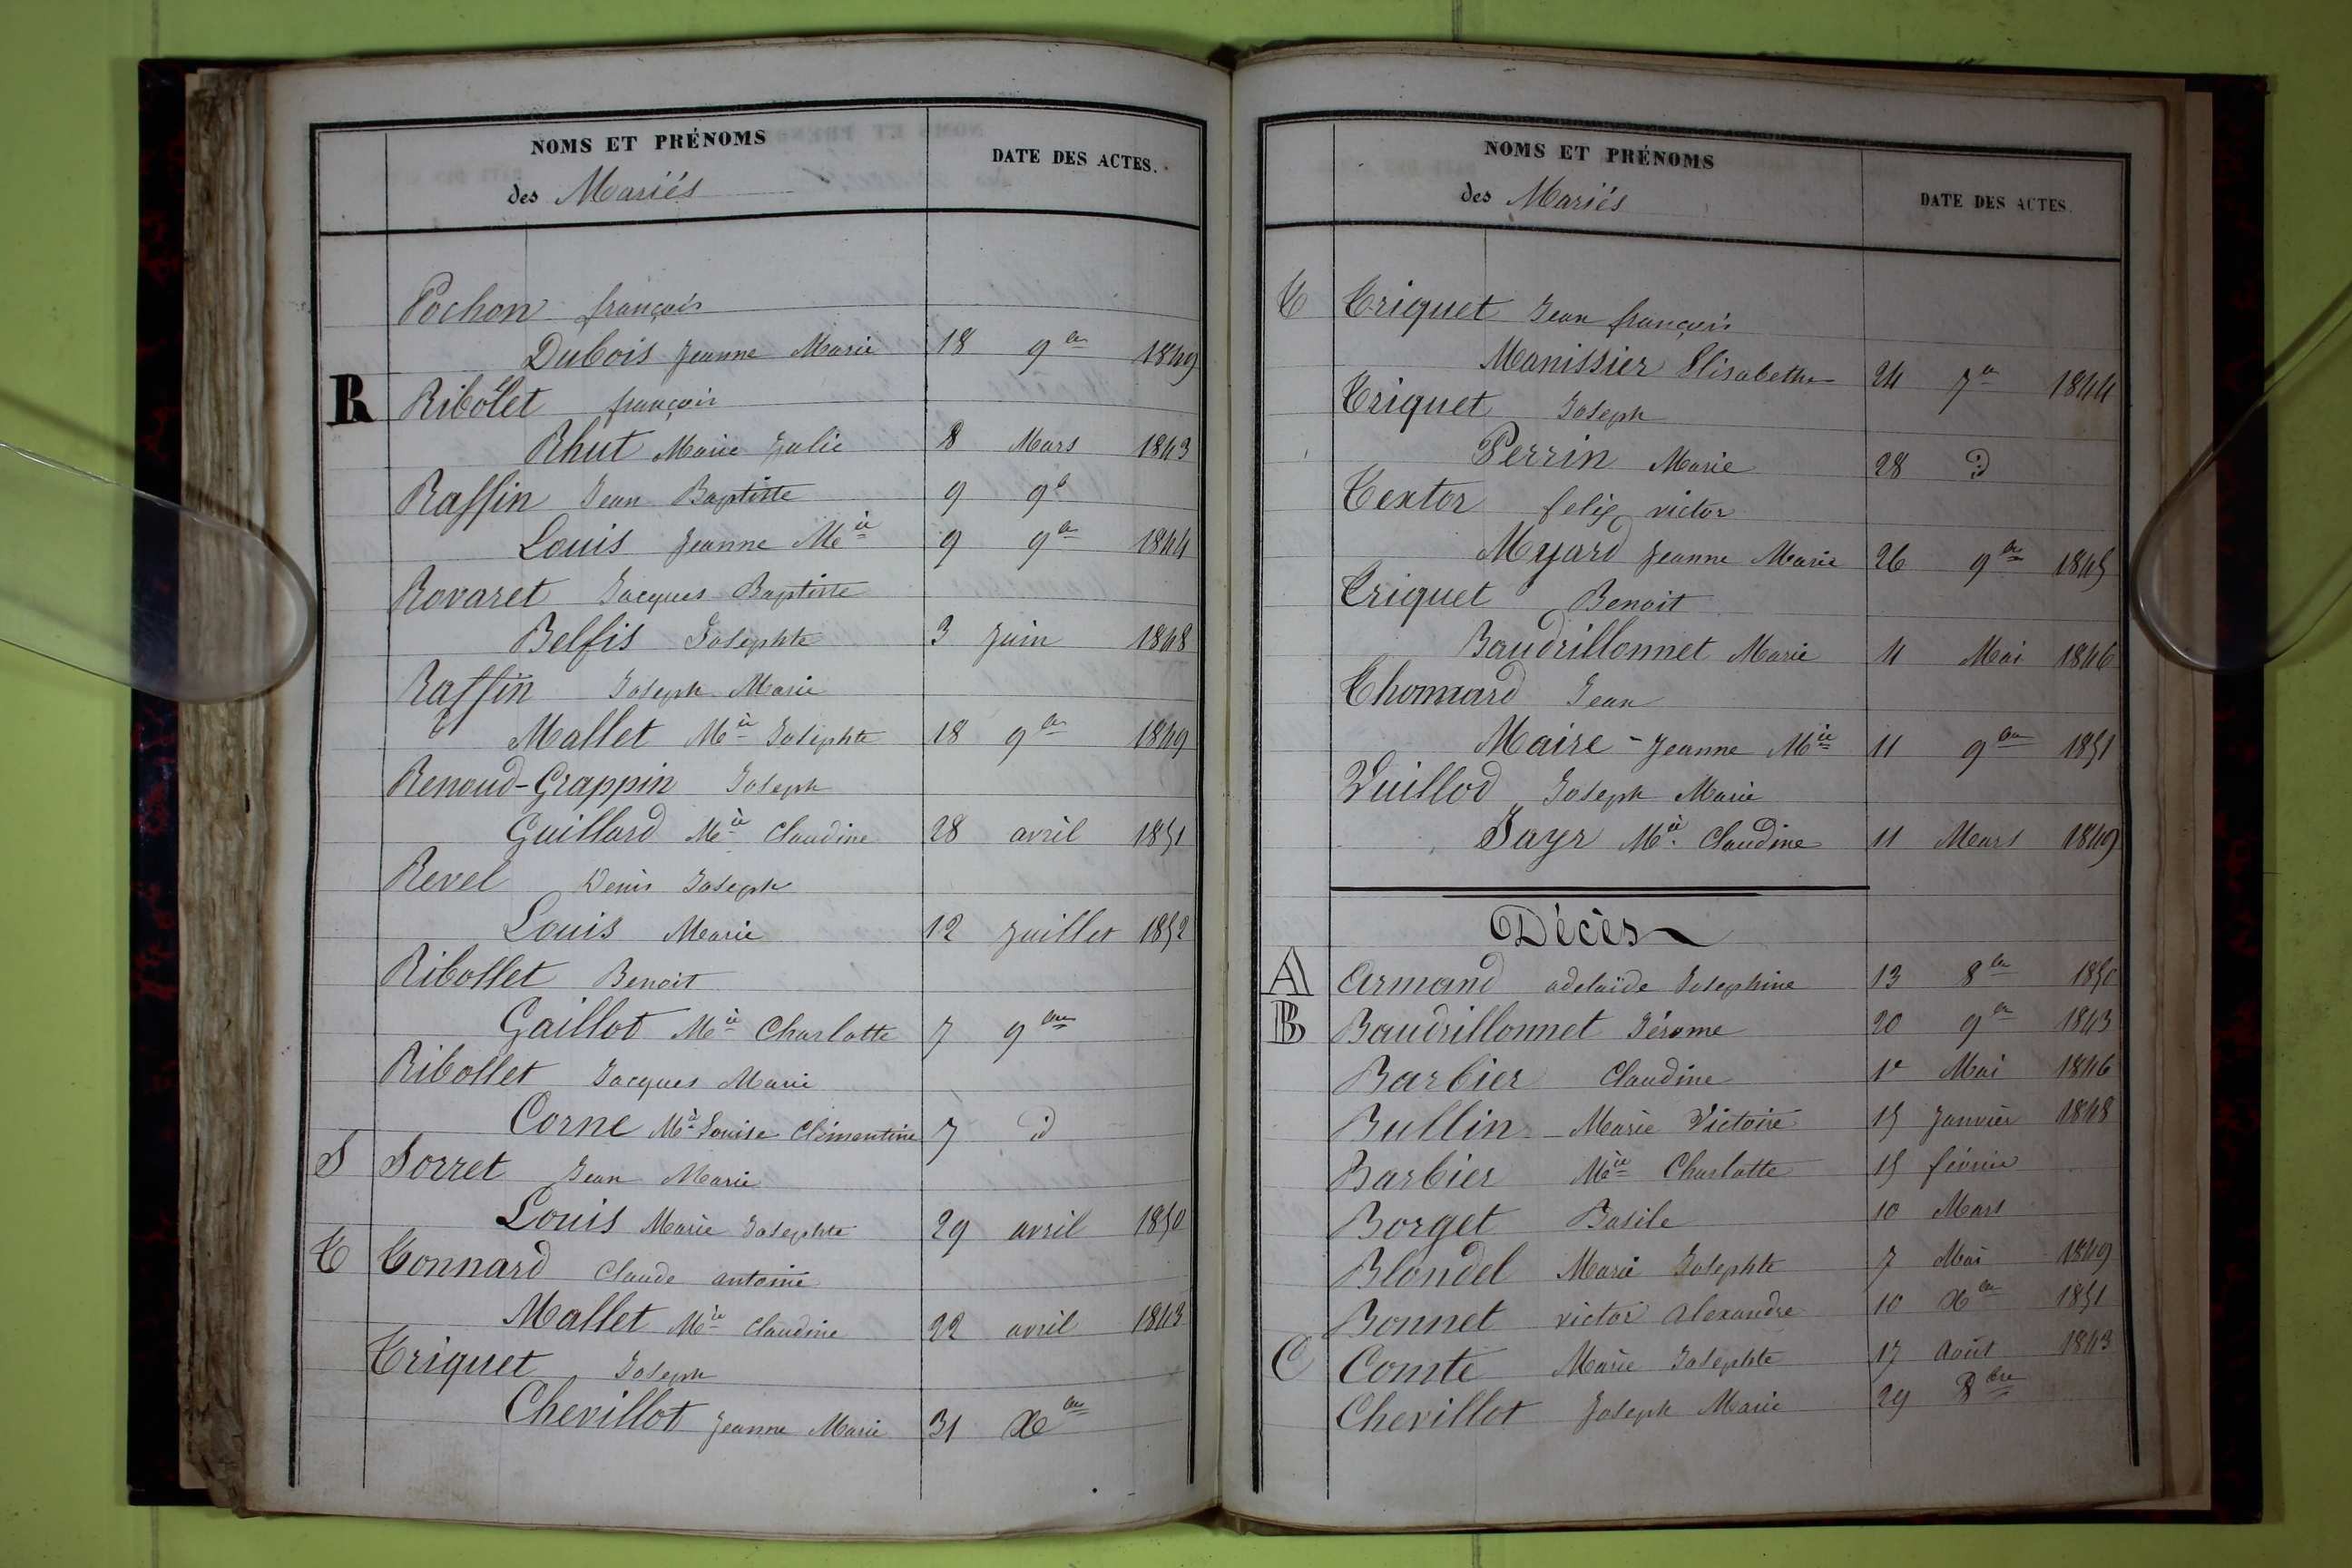 NOMS ET PRÉNOMS DATE DES ACTES.
des Mariés
Pochon françois
Dubois Jeanne Marie 18 9bre 1849
R Ribolet françois
Rhut Marie Julie 8 Mars 1843
Raffin Jean Baptiste 9 9b
Louis Jeanne Mie 9 9bre 1844
Rovaret Jacques Baptiste
Belfis Josephte 3 Juin 1848
Raffin Joseph Marie
Mallet Mie Josephte 18 9bre 1849
Renoud-Grappin Joseph
Guillard Mie Claudine 28 avril 1851
Revel Denis Joseph
Louis Marie 12 Juillet 1852
Ribollet Benoit
Gaillot Mie Charlotte 7 9bre
Ribollet Jacques Marie
Corne Mie Louise Clémentine 7 d
S Sorret Jean Marie
Louis Marie Josephte 29 avril 1850
T Tonnard Claude antoine
Mallet Mie Claudine 22 avril 1843
Triquet Joseph
Chevillot Jeanne Marie 31 Xbre
NOMS ET PRÉNOMS DATE DES ACTES.
des Mariés
T Triquet Jean françois
Manissier Elisabeth 24 7bre 1844
Triquet Joseph
Perrin Marie 28 d
Textor felix victor
Myard Jeanne Marie 26 9bre 1845
Triquet Benoit
Baudrillonnet Marie 11 Mai 1846
Thomard Jean
Maire - Jeanne Mie 11 9bre 1851
Vuillod Joseph Marie
Jayr Mie Claudine 11 Mars 1849
Décès
A Armand adelaïde Josephine 13 8bre 1850
B Baudrillonnet Jérome 20 9bre 1843
Barbier Claudine 1er Mai 1846
Bullin - Marie Victoire 15 Janvier 1848
Barbier Mie Charlotte 15 février
Borget Basile 10 Mars
Blondel Marie Josephte 7 Mai 1849
Bonnet victor alexandre 10 Xbre 1851
C Comte Marie Josephte 17 Août 1843
Chevillot Joseph Marie 29 8bre